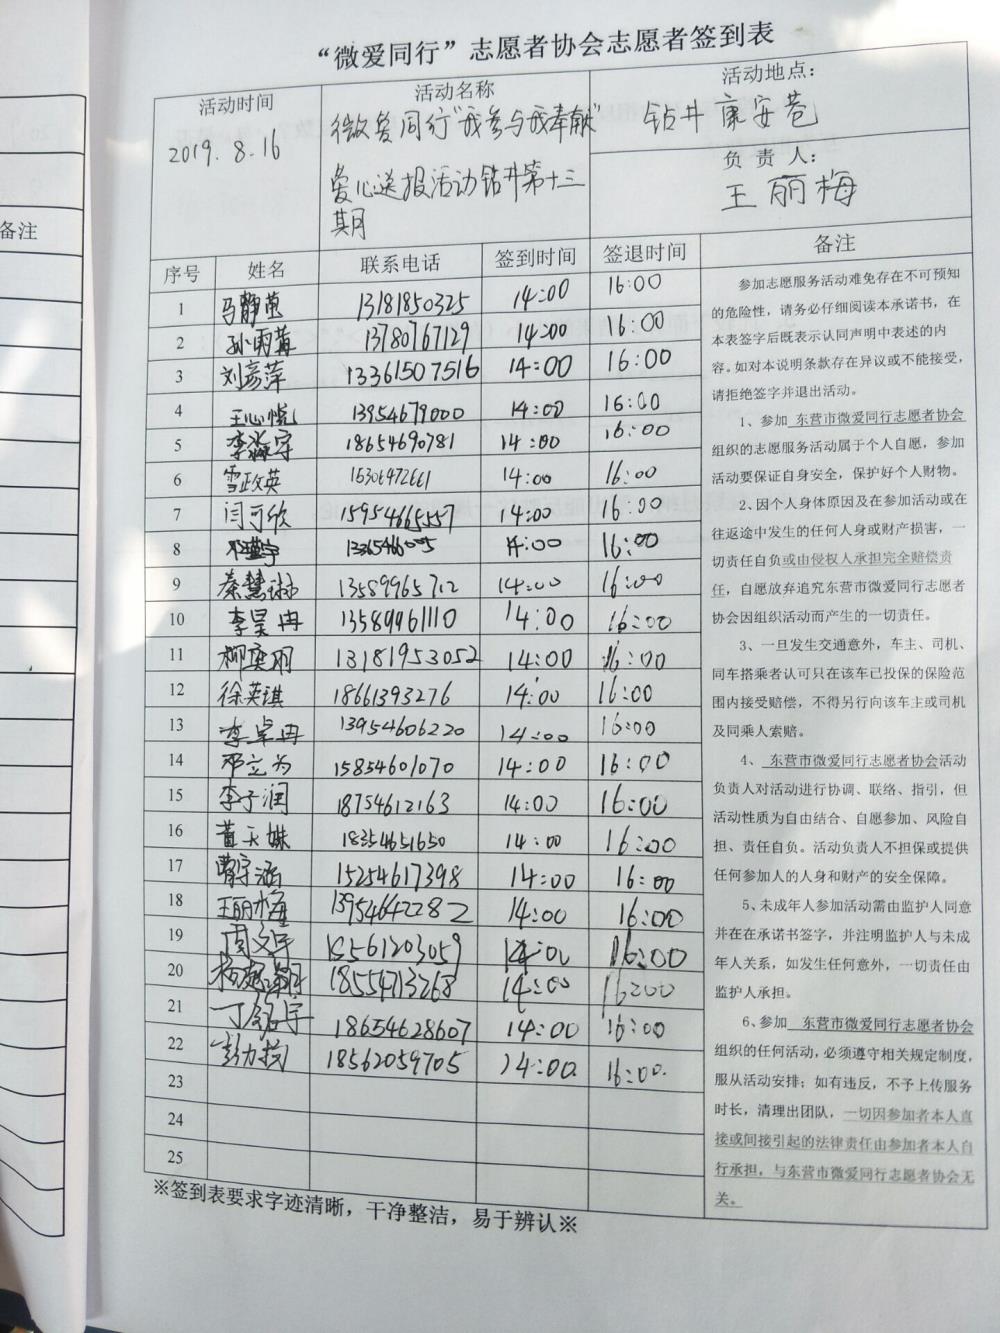 “微爱同行”志愿者协会志愿者签到表
活动时间
2019.8.16
活动名称
微爱同行“我参与我奉献”
爱心送报活动钻井第十三
期
活动地点：
钻井康安苑
负责人：
王丽梅
序号 姓名 联系电话 签到时间 签退时间 备注
1 马静萱 13181850325 14:00 16:00
2 孙雨菁 13780767129 14:00 16:00
3 刘彦萍 13361507516 14:00 16:00
4 王心悦 13954679000 14:00 16:00
5 李淼宇 18654690781 14:00 16:00
6 雪政英 15305472661 14:00 16:00
7 闫可欣 15954665557 14:00 16:00
8 14:00 16:00
9 秦慧琳 13589965712 14:00 16:00
10 李昊冉 13589961110 14:00 16:00
11 柳奕羽 13181953052 14:00 16:00
12 徐英琪 18661393276 14:00 16:00
13 李卓冉 13954606220 14:00 16:00
14 邓立为 15854601070 14:00 16:00
15 李子润 18754612163 14:00 16:00
16 董天姝 18354651650 14:00 16:00
17 曹宇涵 15254617398 14:00 16:00
18 王丽梅 13954642282 14:00 16:00
19 周文宇 15561203059 14:00 16:00
20 18554713268 14:00 16:00
21 丁铭宇 18654628607 14:00 16:00
22 18562059705 14:00 16:00
23
24
25
参加志愿服务活动难免存在不可预知
的危险性，请务必仔细阅读本承诺书，在
本表签字后既表示认同声明中表述的内
容。如对本说明条款存在异议或不能接受，
请拒绝签字并退出活动。
1、参加 东营市微爱同行志愿者协会
组织的志愿服务活动属于个人自愿，参加
活动要保证自身安全，保护好个人财物。
2、因个人身体原因及在参加活动或在
往返途中发生的任何人身或财产损害，一
切责任自负或由侵权人承担完全赔偿责
任，自愿放弃追究东营市微爱同行志愿者
协会因组织活动而产生的一切责任。
3、一旦发生交通意外，车主、司机、
同车搭乘者认可只在该车已投保的保险范
围内接受赔偿，不得另行向该车主或司机
及同乘人索赔。
4、 东营市微爱同行志愿者协会活动
负责人对活动进行协调、联络、指引，但
活动性质为自由结合、自愿参加、风险自
担、责任自负。活动负责人不担保或提供
任何参加人的人身和财产的安全保障。
5、未成年人参加活动需由监护人同意
并在在承诺书签字，并注明监护人与未成
年人关系，如发生任何意外，一切责任由
监护人承担。
6、参加 东营市微爱同行志愿者协会
组织的任何活动，必须遵守相关规定制度，
服从活动安排；如有违反，不予上传服务
时长，清理出团队，一切因参加者本人直
接或间接引起的法律责任由参加者本人自
行承担，与东营市微爱同行志愿者协会无
关。
※签到表要求字迹清晰，干净整洁，易于辨认※
备注